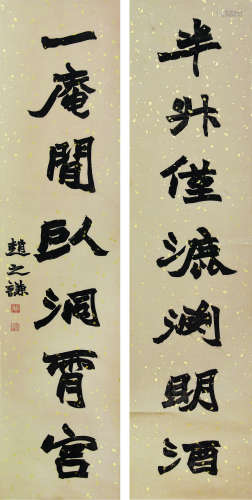 半升僅漉淵明酒
一庵閒臥洞霄宮
趙之謙